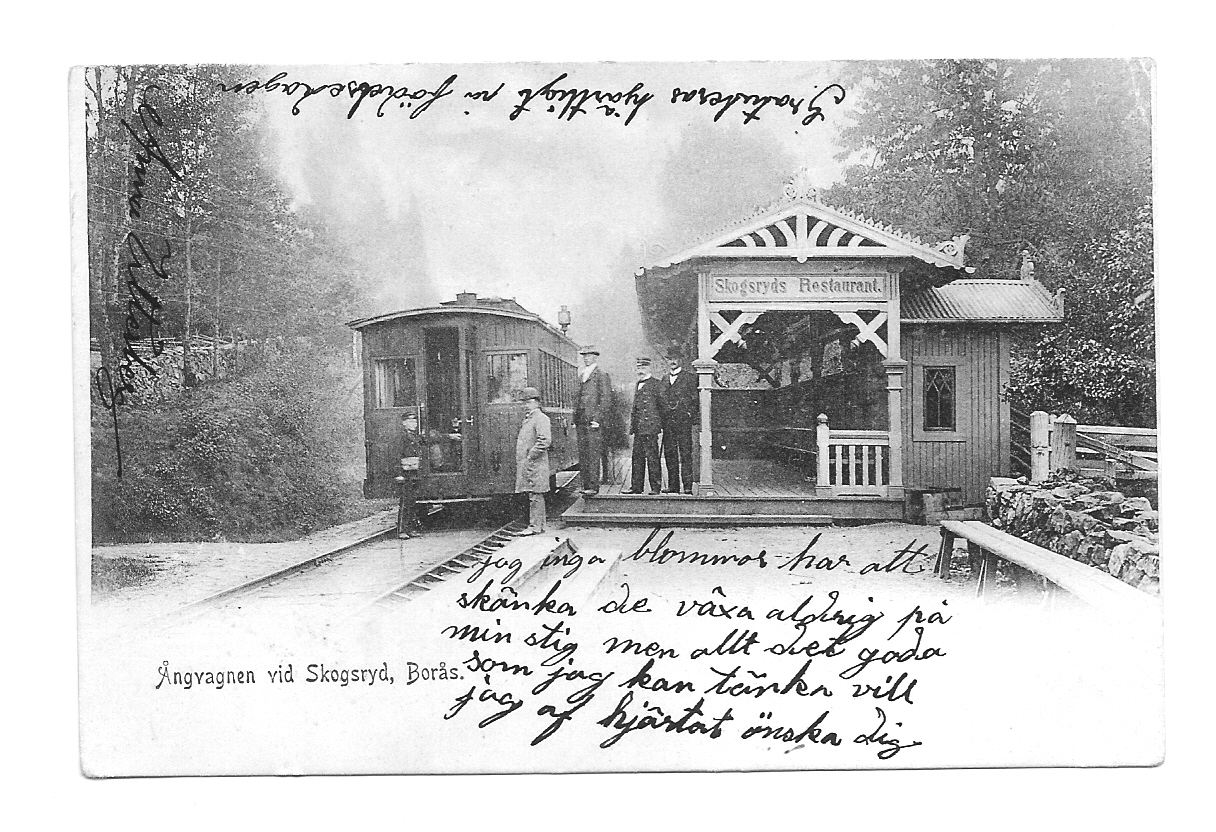 Gratuleras hjärtligt på födelsedagen
Skogsryds Restaurant.
jag inga blommor har att
skänka de växa aldrig på
min stig men allt det goda
som jag kan tänka vill
jag af hjärtat önska dig
Ångvagnen vid Skogsryd, Borås.